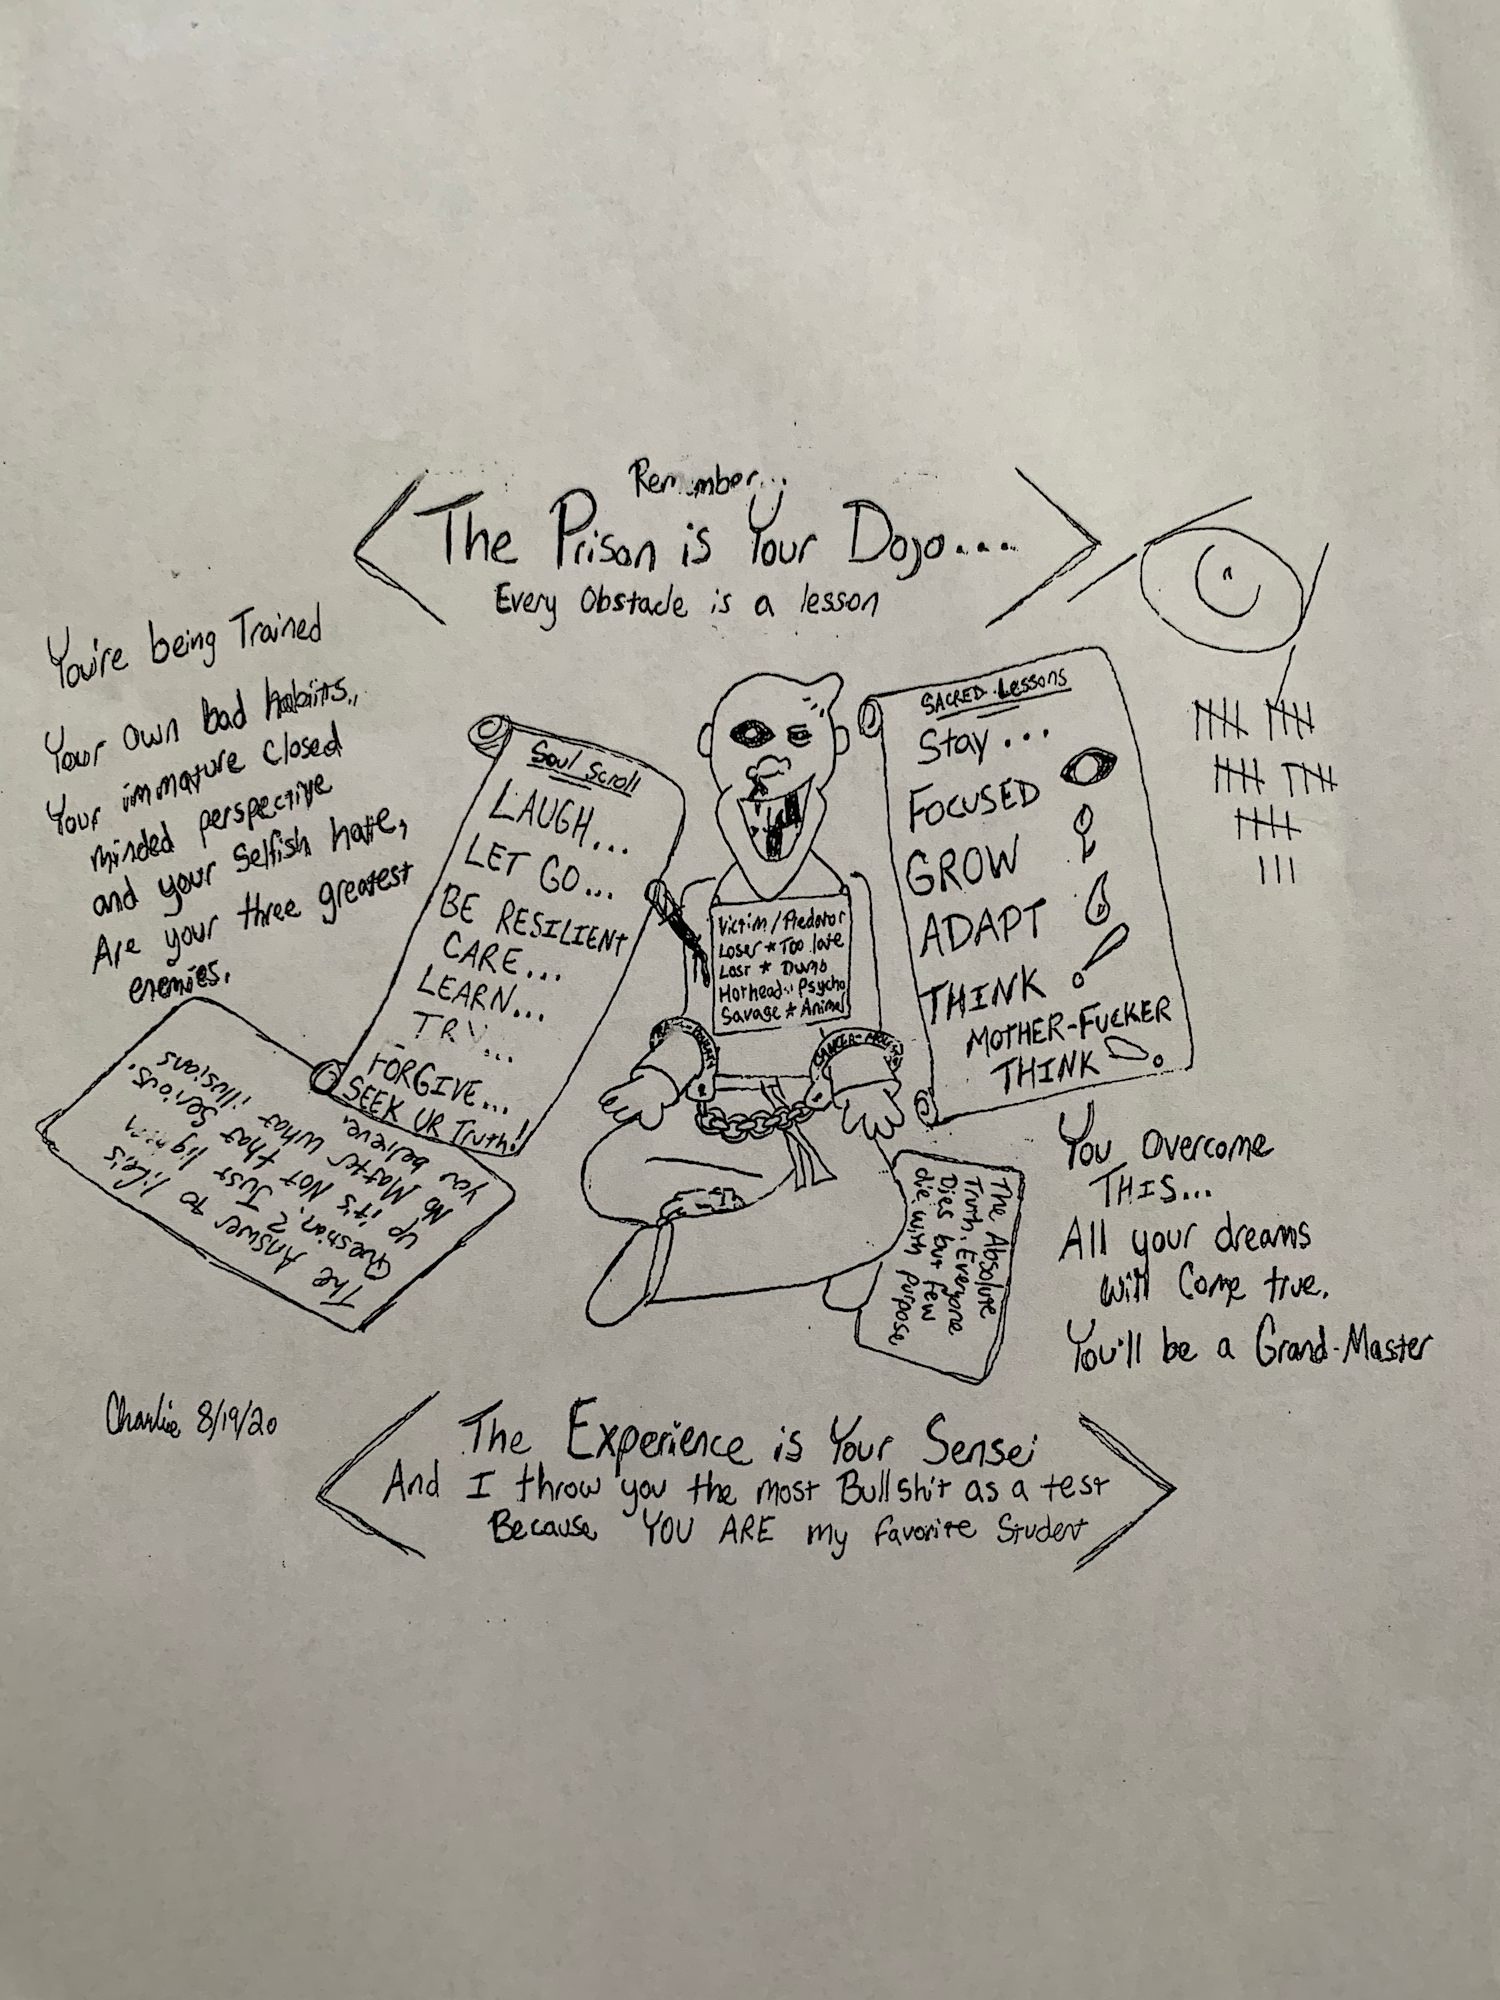 Remember...
The Prison is Your Dojo....
Every Obstacle is a lesson
You're being Trained
Your own bad habits,
Your immature closed
minded perspective
and your selfish hate,
Are your three greatest
enemies.
Soul Scroll
LAUGH...
LET GO...
BE RESILIENT
CARE...
LEARN...
TRY...
FORGIVE...
SEEK UR Truth!
Victim / Predator
Loser * Too late
Lost * Dumb
Hothead .. Psycho
Savage * Animal
SACRED Lessons
Stay...
FOCUSED
GROW
ADAPT
THINK
MOTHER-FUCKER
THINK
The Answer to life's
Question? Just lighten
up it's Not that serious.
No Matter what illusions
you believe.
The Absolute
Truth. Everyone
Dies but few
die with purpose
You overcome
THIS...
All your dreams
will Come true.
You'll be a Grand-Master
Charlie 8/19/20
The Experience is Your Sensei
And I throw you the most Bullshit as a test
Because YOU ARE my favorite Student